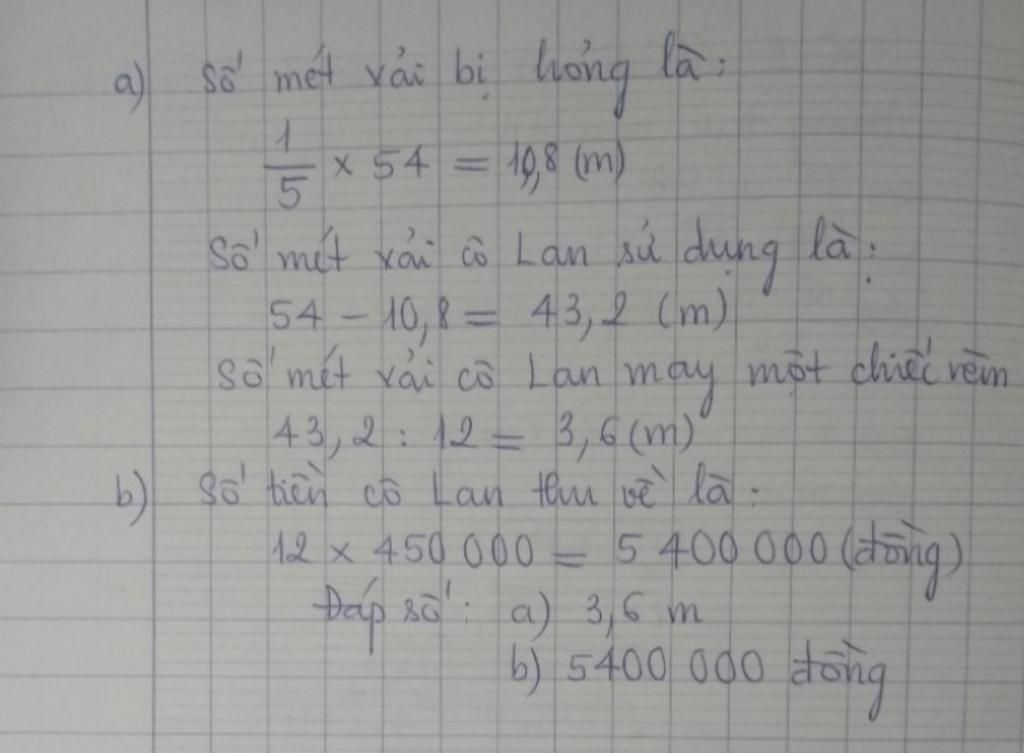 a) Số mét vải bị hỏng là:
1/5 × 54 = 10,8 (m)
Số mét vải cô Lan sử dụng là:
54 - 10,8 = 43,2 (m)
Số mét vải cô Lan may một chiếc rèm
43,2 : 12 = 3,6 (m)
b) Số tiền cô Lan thu về là:
12 × 450 000 = 5 400 000 (đồng)
Đáp số: a) 3,6 m
b) 5400 000 đồng